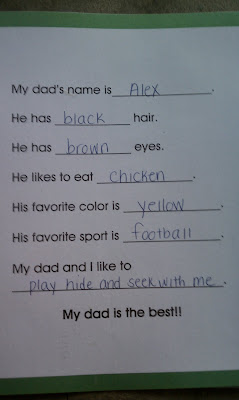 My dad's name is Alex.
He has black hair.
He has brown eyes.
He likes to eat chicken.
His favorite color is yellow.
His favorite sport is football.
My dad and I like to
play hide and seek with me.
My dad is the best!!